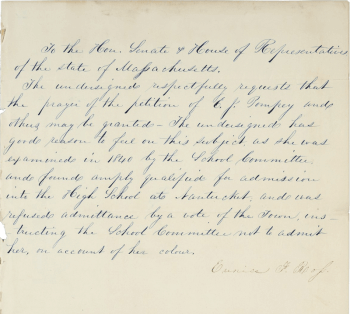 To the Hon. Senate & House of Representatives
of the state of Massachusetts.
The undersigned respectfully requests that
the prayer of the petition of E. J. Pompey and
others may be granted — The undersigned has
good reason to feel on this subject, as she was
examined in 1840 by the School Committee
and found amply qualified for admission
into the High School at Nantucket, and was
refused admittance by a vote of the Town, ins
tructing the School Committee not to admit
her, on account of her colour.
Eunice F. Ross